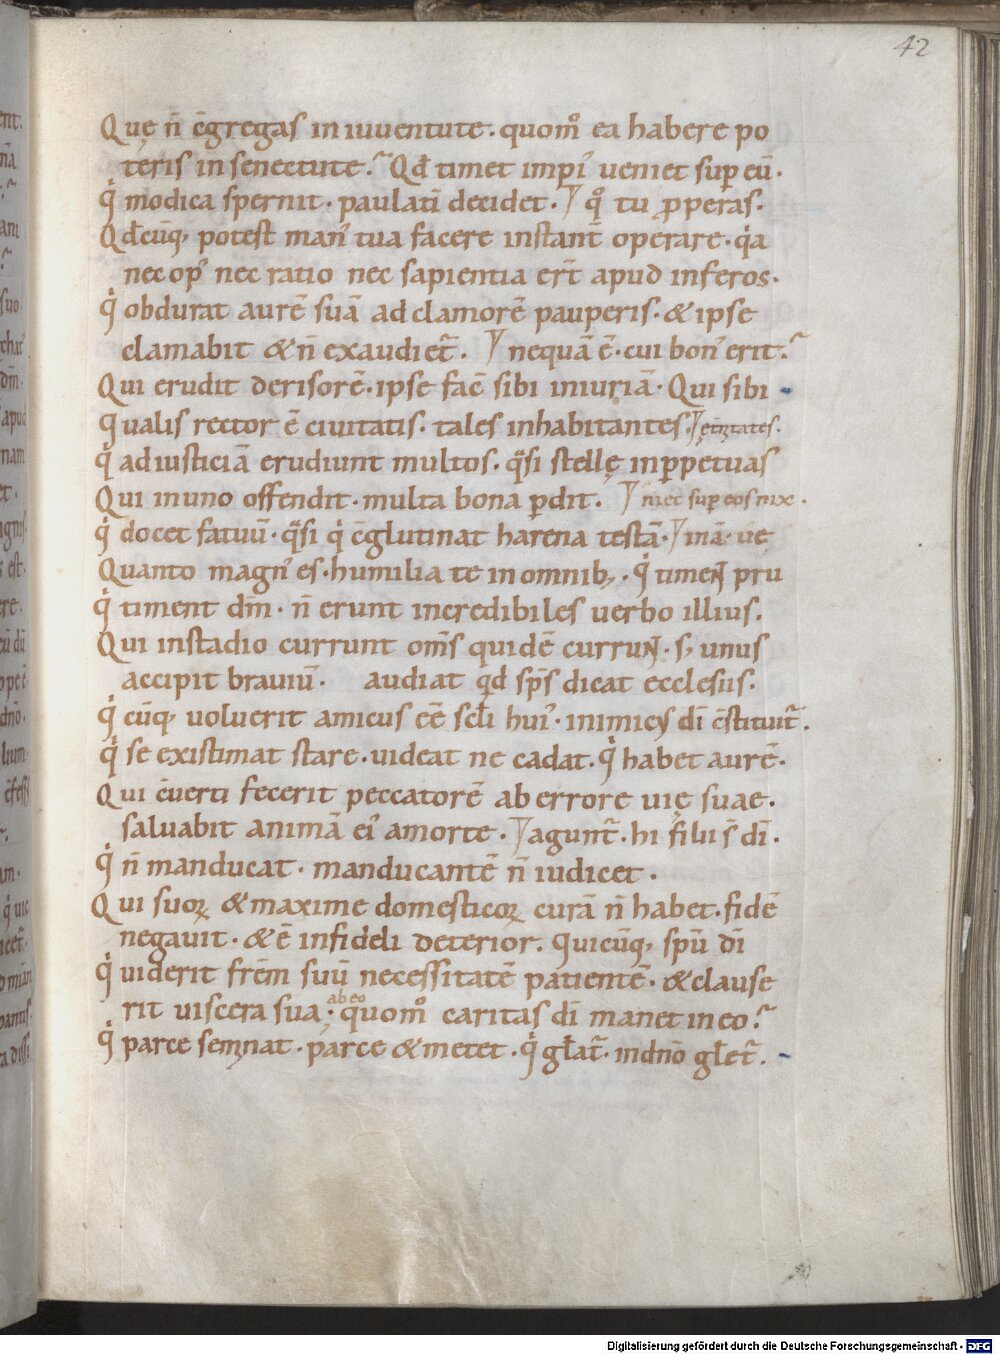 42
Quę n̄ c̄gregas in iuuentute. quom̊ ea habere po
teris in senectute.᷒ Qđ timet impiꝰ ueniet sup eū.
qͥ modica spernit. paulatī decidet. qͦ tu ꝓperas.
Qđcūq, potest manꝰ tua facere instant̄ operare. qͥa
nec opꝰ nec ratio nec sapientia er̄t apud inferos.
qͥ obdurat aurē suā ad clamorē pauperis. & ipse
clamabit & n̄ exaudiet̄. nequā ē. cui bonꝰ erit.
Qui erudit derisorē. ipse fac̄ sibi iniuriā. Qui sibi
qualis rector ē ciuitatis. tales inhabitantes. ęt̄nitates.
qͥ ad iusticiā erudiunt multos. qͣsi stellę in ꝑpetuas
Qui in uno offendit. multa bona ꝑdit. iriuet sup eos nix.
qͥ docet fatuū. qͣsi qͥ c̄glutinat harena testā. inā. ue
Quanto magnꝰ es. humilia te in omnib,. qͥ timen̄ pru
qͥ timent dm̄. n̄ erunt incredibiles uerbo illius.
Qui in stadio currunt om̄s quidē currun̄. s, unus
accipit brauiū. audiat qd̄ sp̄s dicat ecclesiis.
qͥ cūq, uoluerit amicus eē scl̄i huiꝰ. inimicꝰ dī c̄stituit̄.
qͥ se existimat stare. uideat ne cadat. qͥ habet aurē.
Qui c̄uerti fecerit peccatorē ab errore uię suae.
saluabit animā eiꝰ a morte. agunt̄. hi filii s̄ dī.
qͥ n̄ manducat. manducantē n̄ iudicet.
Qui suoꝝ & maxime domesticoꝝ curā n̄ habet. fidē
negauit. & ē infideli deterior. Quicūq, spū dī
qͥ uiderit frēm suū necessitatē patientē. & clause
rit uiscera sua, ab eo. quom̊ caritas dī manet in eo.
qͥ parce seminat. parce & metet. qͥ gl̄at̄. in dn̄o gl̄et̄.
Digitalisierung gefördert durch die Deutsche Forschungsgemeinschaft - DFG